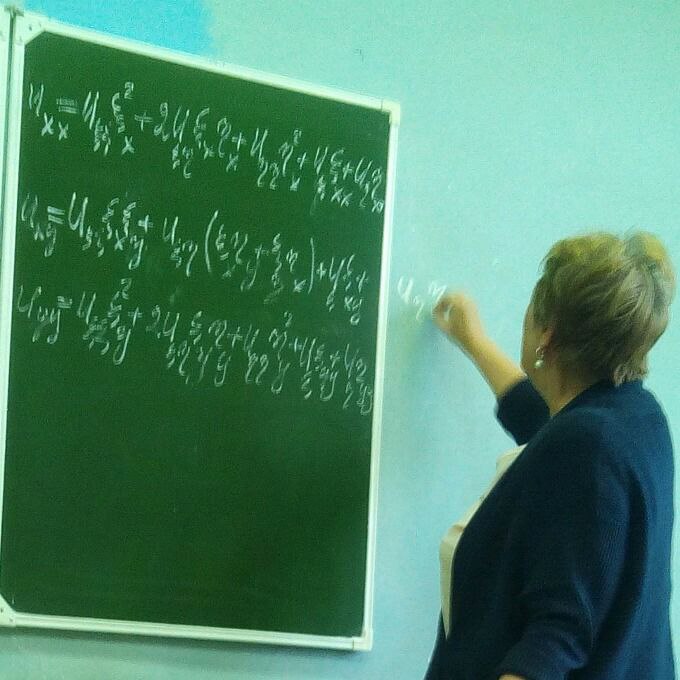 u_xx = u_ξξ ξ_x² + 2u_ξη ξ_x η_x + u_ηη η_x² + u_ξ ξ_xx + u_η η_xx
u_xy = u_ξξ ξ_x ξ_y + u_ξη (ξ_x η_y + ξ_y η_x) + u_ξ ξ_xy + u_η η
u_yy = u_ξξ ξ_y² + 2u_ξη ξ_y η_y + u_ηη η_y² + u_ξ ξ_yy + u_η η_yy